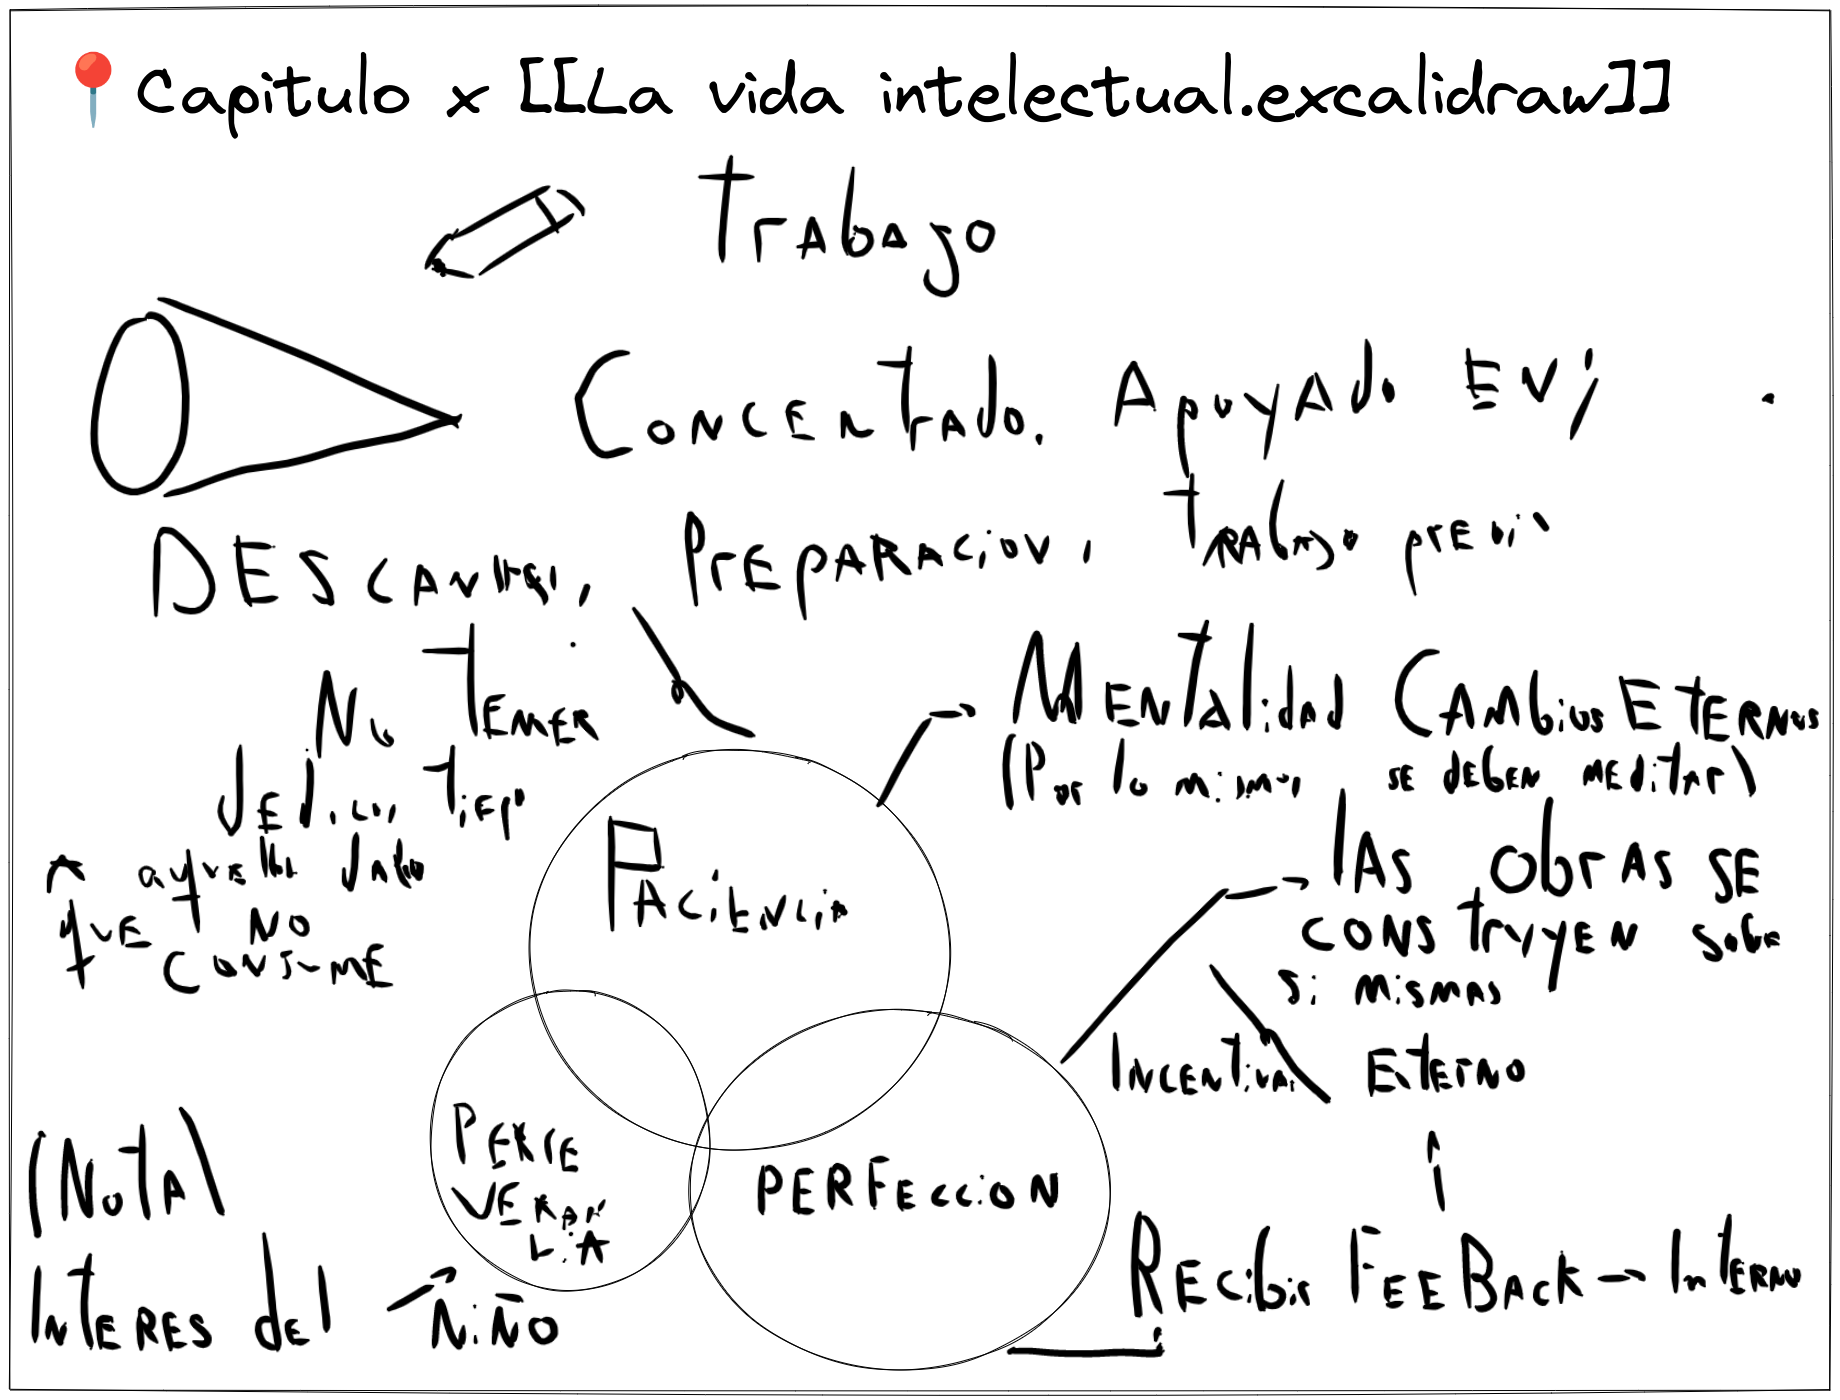 Capitulo x [[La vida intelectual.excalidraw]]
Trabajo
Concentrado. Apoyado EN;
DESCANSO, PrEPARACION, trabajo previo
No TEMER
dedicar tiempo
A aquello dado
que NO
CONSUME
MENtalidad CAMbios ETERNOS
(Por lo mismo, SE DEBEN MEditar)
PACiENCiA
lAS obrAS SE
CONStruyEN sobre
Si MiSMAS
INCENtivar
ExtErNO
PERSE
VERAN
CiA
PERFECCiON
Recibir FEEBACK → INtERNO
(NotA)
INtERES dEl
NiÑO